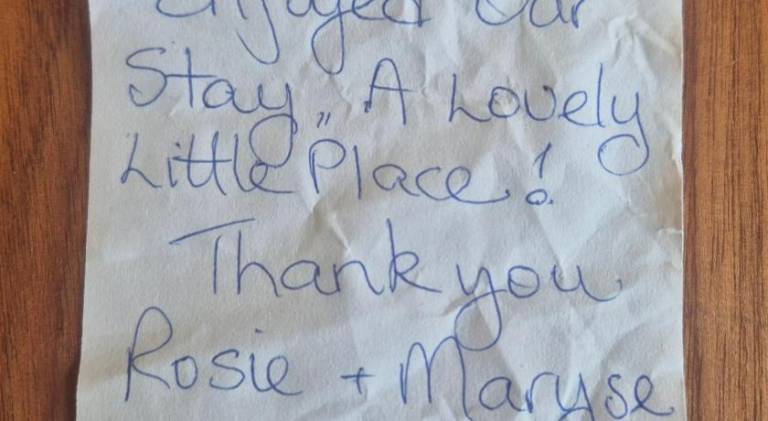 Enjoyed Our
Stay,, A Lovely
Little Place!
Thank you
Rosie + Maryse